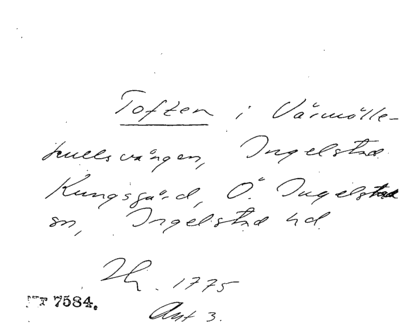 Toften i Värmölle-
kullsvången, Ingelstad
Kungsgård, Ö. Ingelstad
sn, Ingelstad hd.
1775
7584.
Akt 3.